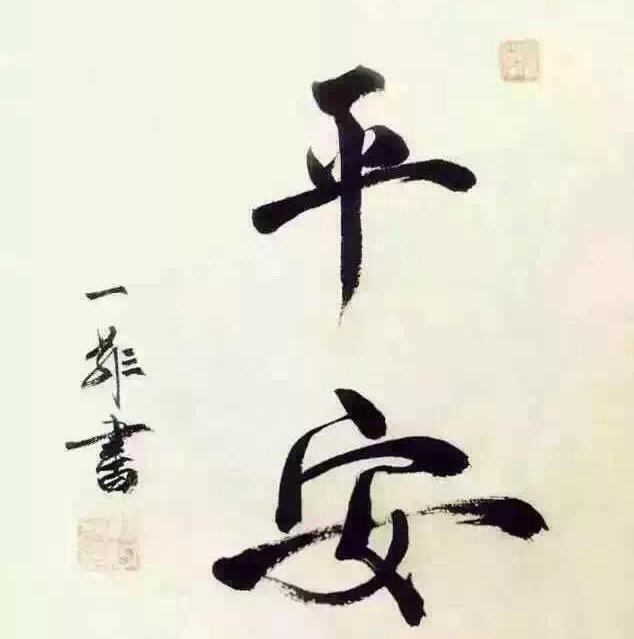 平安
一龍書